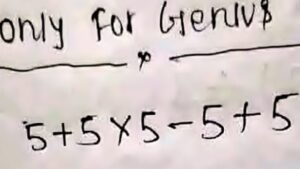 only For Geniu$
5+5×5-5+5